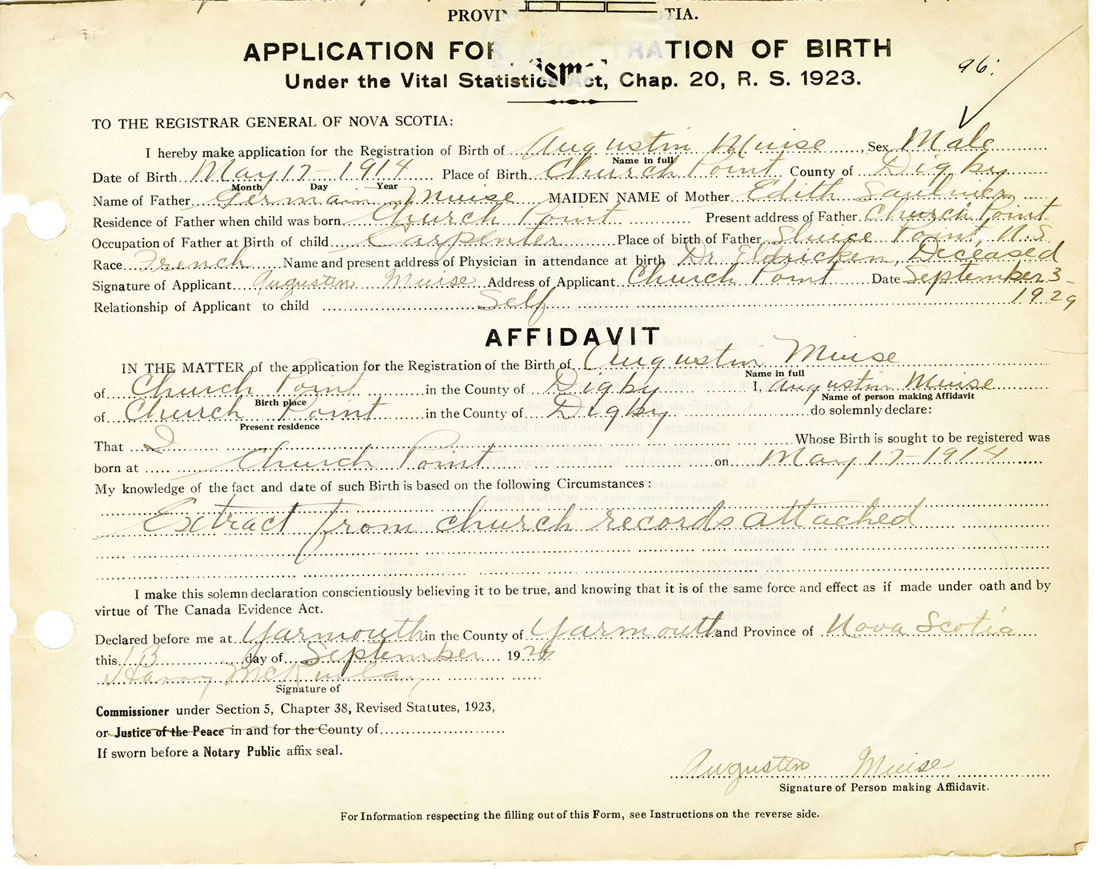 PROVIN TIA.
APPLICATION FOR RATION OF BIRTH
Under the Vital Statistics Act, Chap. 20, R. S. 1923.
96.
TO THE REGISTRAR GENERAL OF NOVA SCOTIA:
I hereby make application for the Registration of Birth of Augustin Muise Sex Male
Name in full
Date of Birth May 17-1914 Place of Birth Church Point County of Digby
Month Day Year
Name of Father Germain Muise MAIDEN NAME of Mother Edith Saulnier
Residence of Father when child was born Church Point Present address of Father Church Point
Occupation of Father at Birth of child Carpenter Place of birth of Father Sluice Point, N.S.
Race French Name and present address of Physician in attendance at birth Dr. Deceased
Signature of Applicant Augustin Muise Address of Applicant Church Point Date September 3-
Relationship of Applicant to child Self 1929
AFFIDAVIT
IN THE MATTER of the application for the Registration of the Birth of Augustin Muise
Name in full
of Church Point in the County of Digby I, Augustin Muise
Birth place Name of person making Affidavit
of Church Point in the County of Digby do solemnly declare:
Present residence
That I Whose Birth is sought to be registered was
born at Church Point on May 17-1914
My knowledge of the fact and date of such Birth is based on the following Circumstances:
Extract from church records attached
I make this solemn declaration conscientiously believing it to be true, and knowing that it is of the same force and effect as if made under oath and by
virtue of The Canada Evidence Act.
Declared before me at Yarmouth in the County of Yarmouth and Province of Nova Scotia
this 13 day of September 192
Harry McKinlay
Signature of
Commissioner under Section 5, Chapter 38, Revised Statutes, 1923,
or Justice of the Peace in and for the County of
If sworn before a Notary Public affix seal.
Augustin Muise
Signature of Person making Affidavit.
For Information respecting the filling out of this Form, see Instructions on the reverse side.